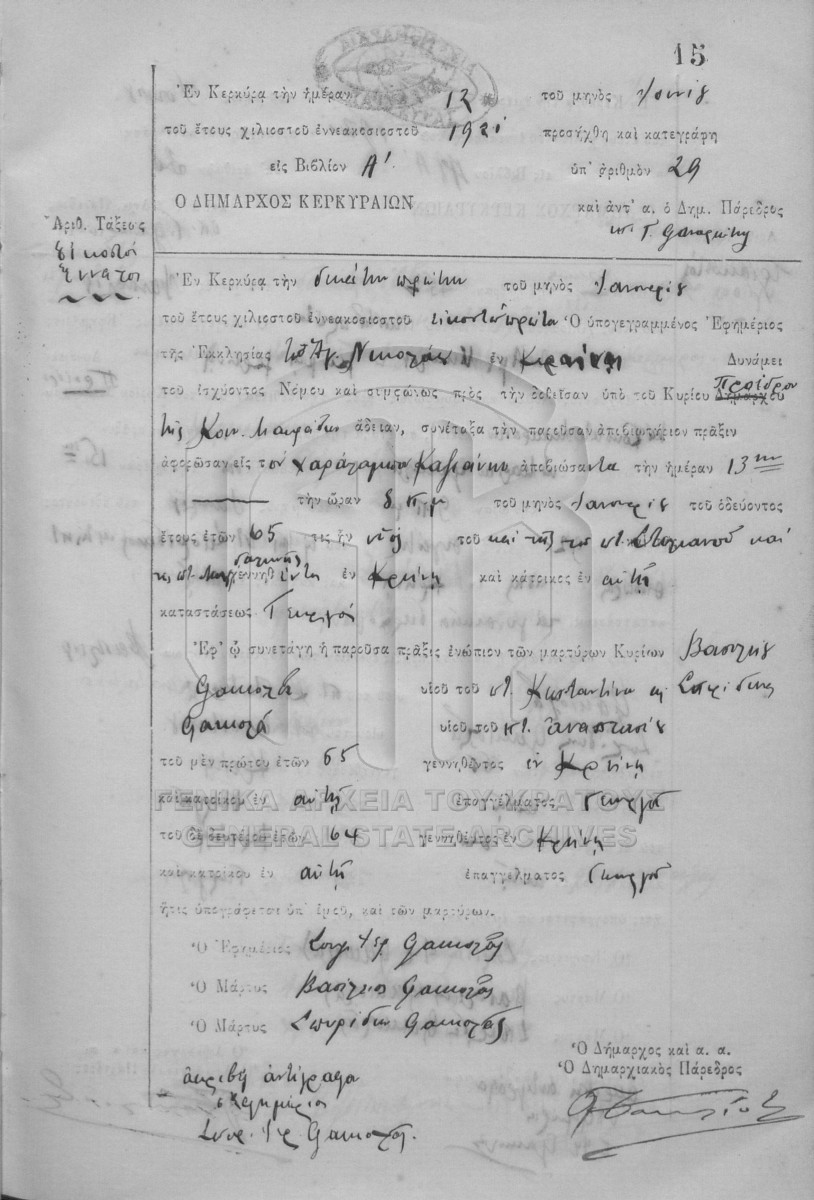 15
Ἐν Κερκύρᾳ τὴν ἡμέραν 12 τοῦ μηνὸς
τοῦ ἔτους χιλιοστοῦ ἐννεακοσιοστοῦ 1921 προσήχθη καὶ κατεγράφη
εἰς Βιβλίον Α' ὑπ' ἀριθμὸν 29
Ο ΔΗΜΑΡΧΟΣ ΚΕΡΚΥΡΑΙΩΝ καὶ ἀντ' α. ὁ Δημ. Πάρεδρος
Ἀριθ. Τάξεως
εἰκοστὸ
ἔννατο
Ἐν Κερκύρᾳ τὴν δεκάτην πρώτην τοῦ μηνὸς Ἰανουαρίου
τοῦ ἔτους χιλιοστοῦ ἐννεακοσιοστοῦ εἰκοστοῦ πρώτου Ὁ ὑπογεγραμμένος Ἐφημέριος
τῆς Ἐκκλησίας τοῦ Ἁγ. Νικολάου ἐν Δυνάμει
τοῦ ἰσχύοντος Νόμου καὶ συμφώνως πρὸς τὴν δοθεῖσαν ὑπὸ τοῦ Κυρίου Δημάρχου Προέδρου
τῆς Κοιν. ἄδειαν, συνέταξα τὴν παροῦσαν ἀποβιωτήριον πρᾶξιν
ἀφορῶσαν εἰς τὸν Χαράλαμπον ἀποβιώσαντα τὴν ἡμέραν 13ην
τὴν ὥραν 8 π.μ τοῦ μηνὸς Ἰανουαρίου τοῦ ὁδεύοντος
ἔτους ἐτῶν 65 τις ἦν υἱὸς τοῦ καὶ τῆς
γεννηθέντα ἐν Κρήνῃ καὶ κάτοικος ἐν αὐτῇ
καταστάσεως Γεωργοῦ
Ἐφ' ᾧ συνετάγη ἡ παροῦσα πρᾶξις ἐνώπιον τῶν μαρτύρων Κυρίων Βασιλείου
υἱοῦ τοῦ ποτ. Κωσταντίνου κ Σπυρίδωνος
υἱοῦ τοῦ ποτ. Ἀναστασίου
τοῦ μὲν πρώτου ἐτῶν 65 γεννηθέντος ἐν Κρήνῃ
καὶ κατοίκου ἐν αὐτῇ ἐπαγγέλματος Γεωργοῦ
ΓΕΝΙΚΑ ΑΡΧΕΙΑ ΤΟΥ ΚΡΑΤΟΥΣ
GENERAL STATE ARCHIVES
τοῦ δὲ δευτέρου ἐτῶν 64 γεννηθέντος ἐν Κρήνῃ
καὶ κατοίκου ἐν αὐτῇ ἐπαγγέλματος Γεωργοῦ
ἥτις ὑπογράφεται ὑπ' ἐμοῦ, καὶ τῶν μαρτύρων.
Ὁ Ἐφημέριος
Ὁ Μάρτυς Βασίλειος
Ὁ Μάρτυς Σπυρίδων
Ὁ Δήμαρχος καὶ α. α.
Ὁ Δημαρχιακὸς Πάρεδρος
ἀκριβὲς ἀντίγραφο
ὁ Ἐφημέριος